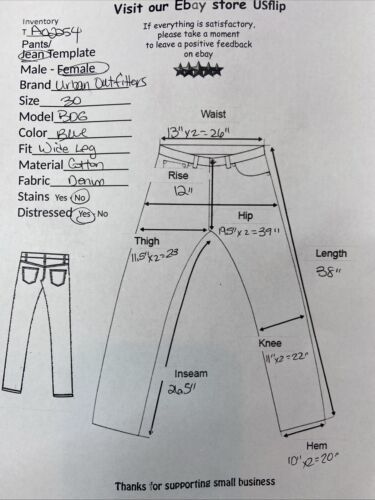 Visit our Ebay store USflip
Inventory
If everything is satisfactory,
please take a moment
to leave a positive feedback
on ebay
Pants/
Jean Template
Male - Female
Brand Urban Outfitters
Size 30
Model BDG
Color Blue
Fit Wide Leg
Material Cotton
Fabric Denim
Stains Yes No
Distressed Yes No
Waist
13" x 2 = 26"
Rise
12"
Hip
19.5" x 2 = 39"
Thigh
11.5" x 2 = 23
Length
38"
Knee
11" x 2 = 22"
Inseam
26.5"
Hem
10" x 2 = 20"
Thanks for supporting small business